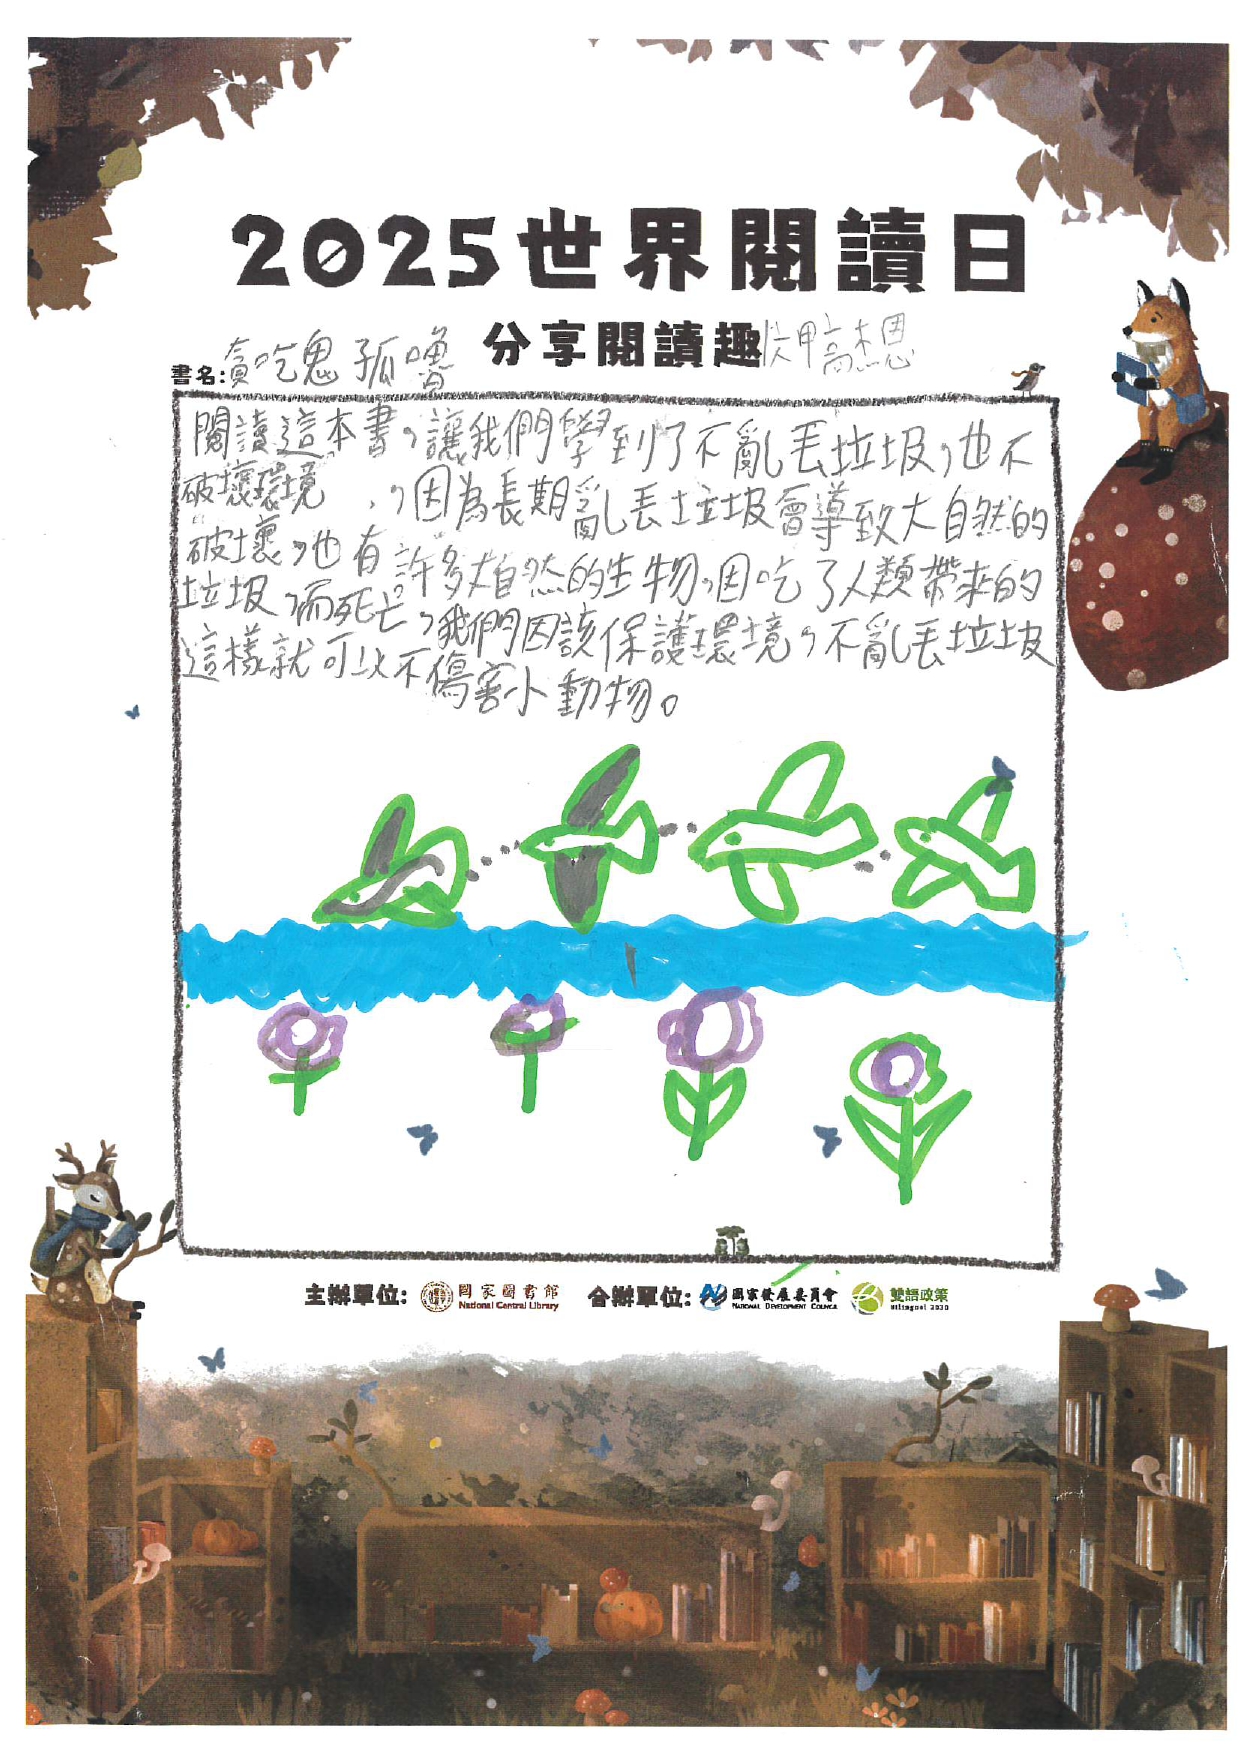 2025世界閱讀日
分享閱讀趣
書名:貪吃鬼孤嚕
甲高杰恩
閱讀這本書,讓我們學到了不亂丟垃圾,也不
破壞環境,,因為長期亂丟垃圾會導致大自然的
破壞,也有許多大自然的生物,因吃了人類帶來的
垃圾,而死亡,我們因該保護環境,不亂丟垃圾
這樣就可以不傷害小動物。
主辦單位: 國家圖書館 National Central Library 合辦單位: 國家發展委員會 National Development Council 雙語政策 Bilingual 2030